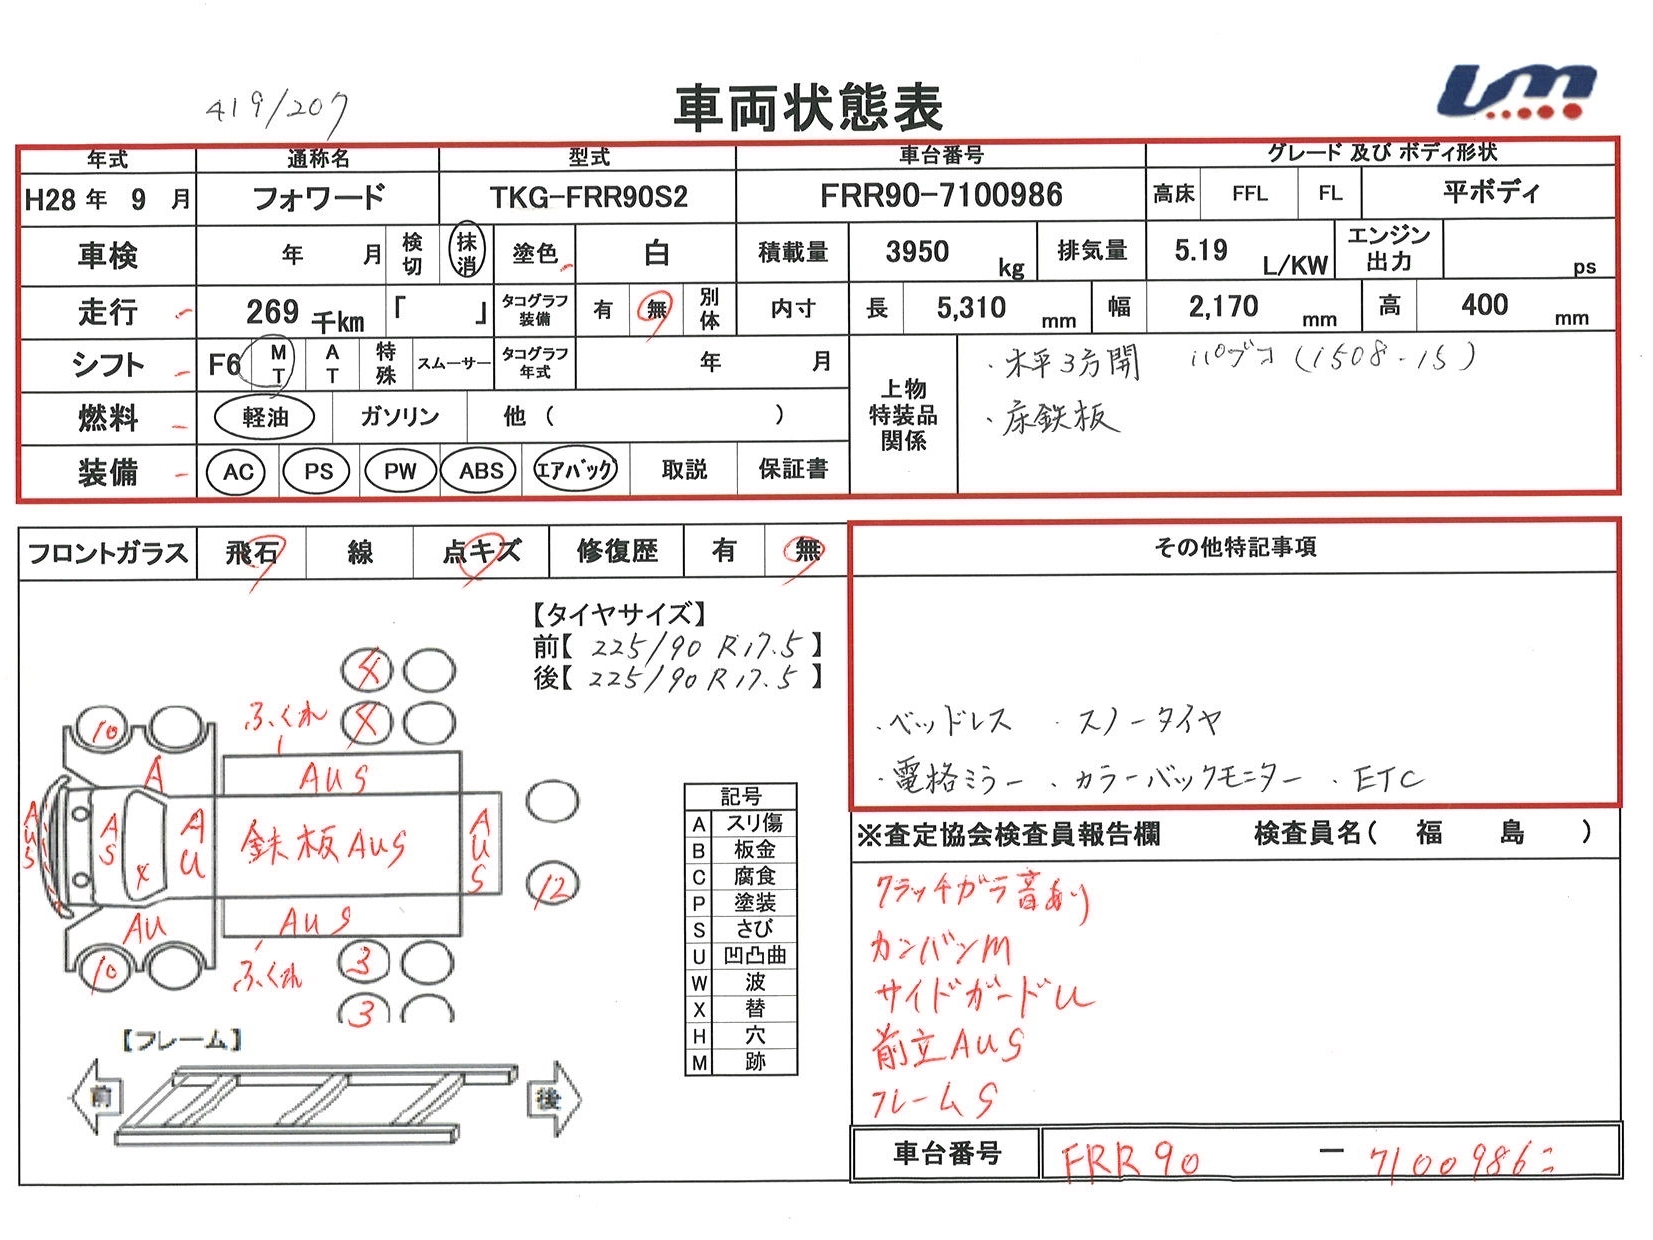 419/207
車両状態表
Um
年式 通称名 型式 車台番号 グレード 及び ボディ形状
H28 年 9 月 フォワード TKG-FRR90S2 FRR90-7100986 高床 FFL FL 平ボディ
車検 年 月 検切 抹消 塗色 白 積載量 3950 kg 排気量 5.19 L/KW エンジン出力 ps
走行 269 千km 「 」 タコグラフ装備 有 無 別体 内寸 長 5,310 mm 幅 2,170 mm 高 400 mm
シフト F6 MT AT 特殊 スムーサー タコグラフ年式 年 月 上物特装品関係 ・木平3方開 パブコ(1508-15)
燃料 軽油 ガソリン 他 ( ) ・床鉄板
装備 AC PS PW ABS エアバック 取説 保証書
フロントガラス 飛石 線 点キズ 修復歴 有 無 その他特記事項
【タイヤサイズ】
前【 225/90 R17.5 】
後【 225/90 R17.5 】
4
ふくれ 4
10
A AUS
AUS AS X AU 鉄板AUS AUS
12
AU AUS
10 ふくれ 3
3
・ベッドレス ・スノータイヤ
・電格ミラー ・カラーバックモニター ・ETC
記号
A スリ傷
B 板金
C 腐食
P 塗装
S さび
U 凹凸曲
W 波
X 替
H 穴
M 跡
※査定協会検査員報告欄 検査員名( 福 島 )
クラッチガラ音あり
カンバンM
サイドガードU
前立AUS
フレームS
【フレーム】
前 後
車台番号 FRR90 - 7100986